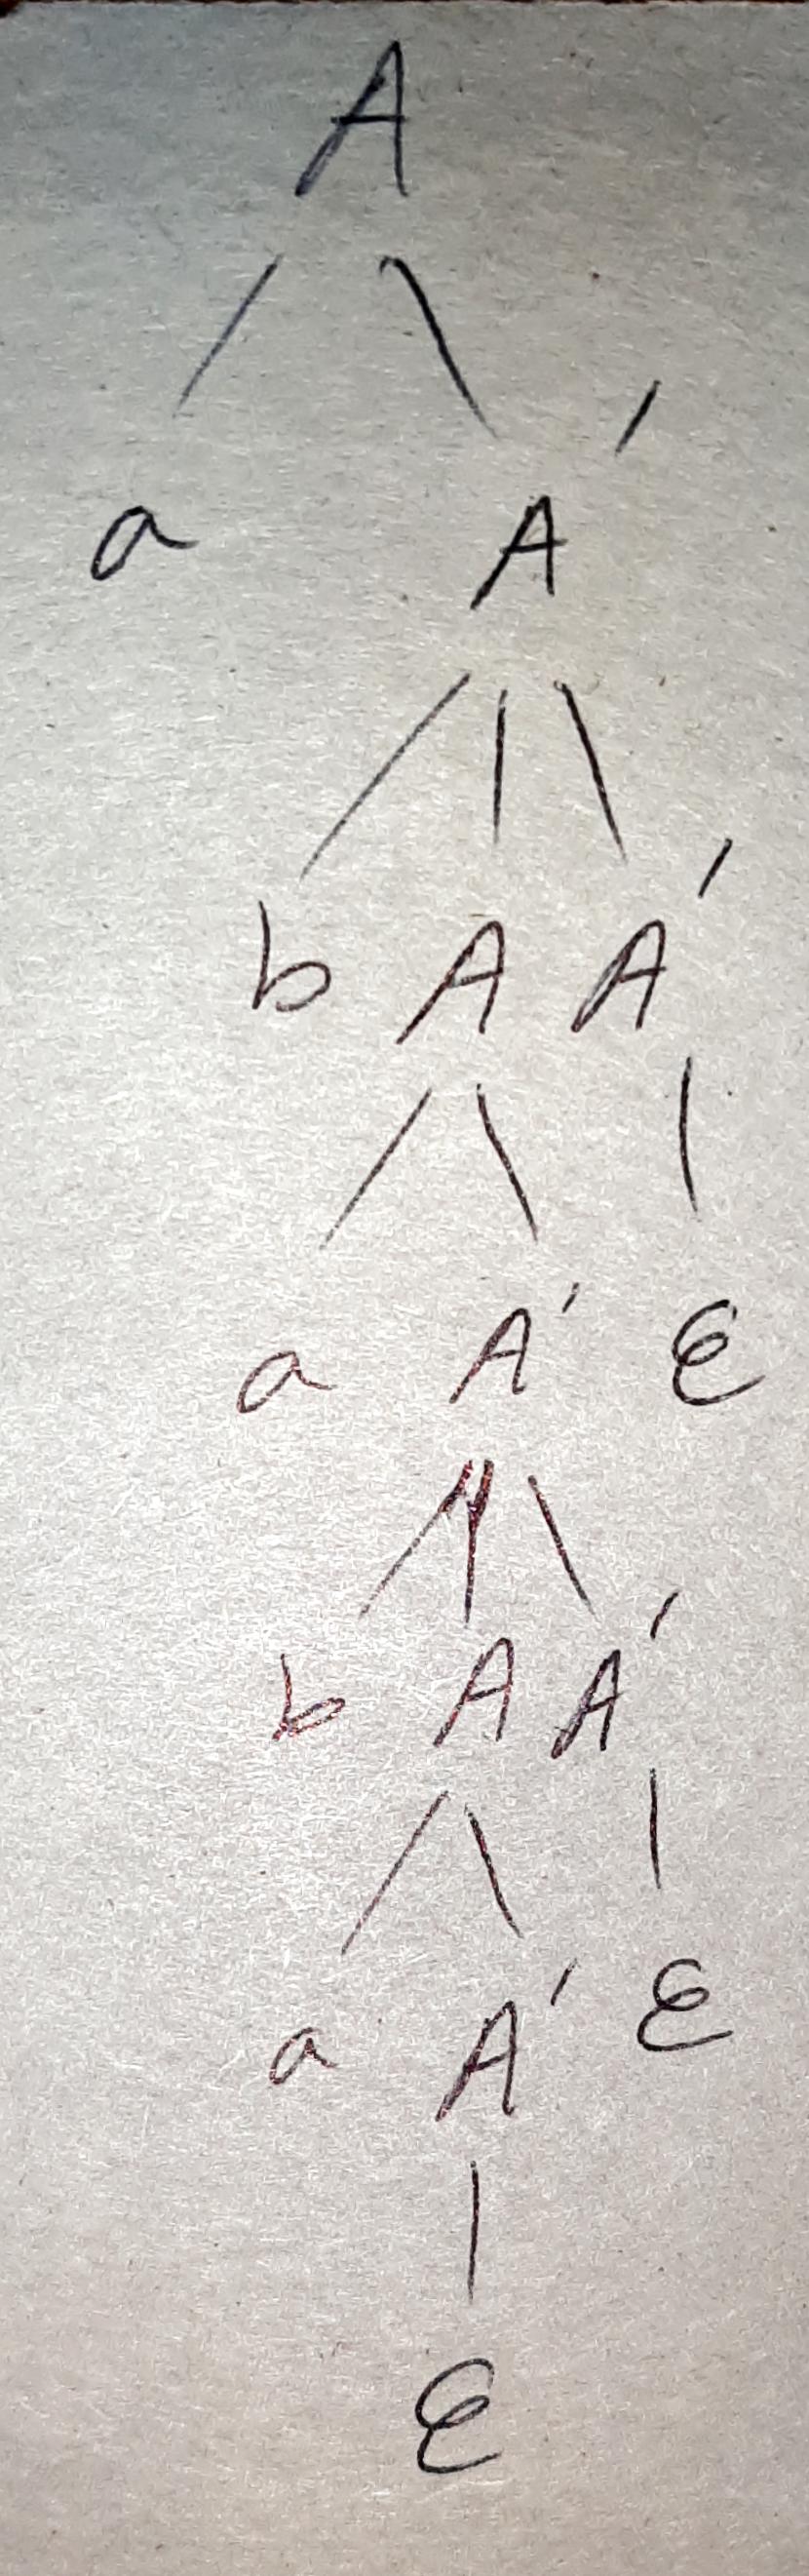 A
a A'
b A A'
a A' ε
b A A'
a A' ε
ε